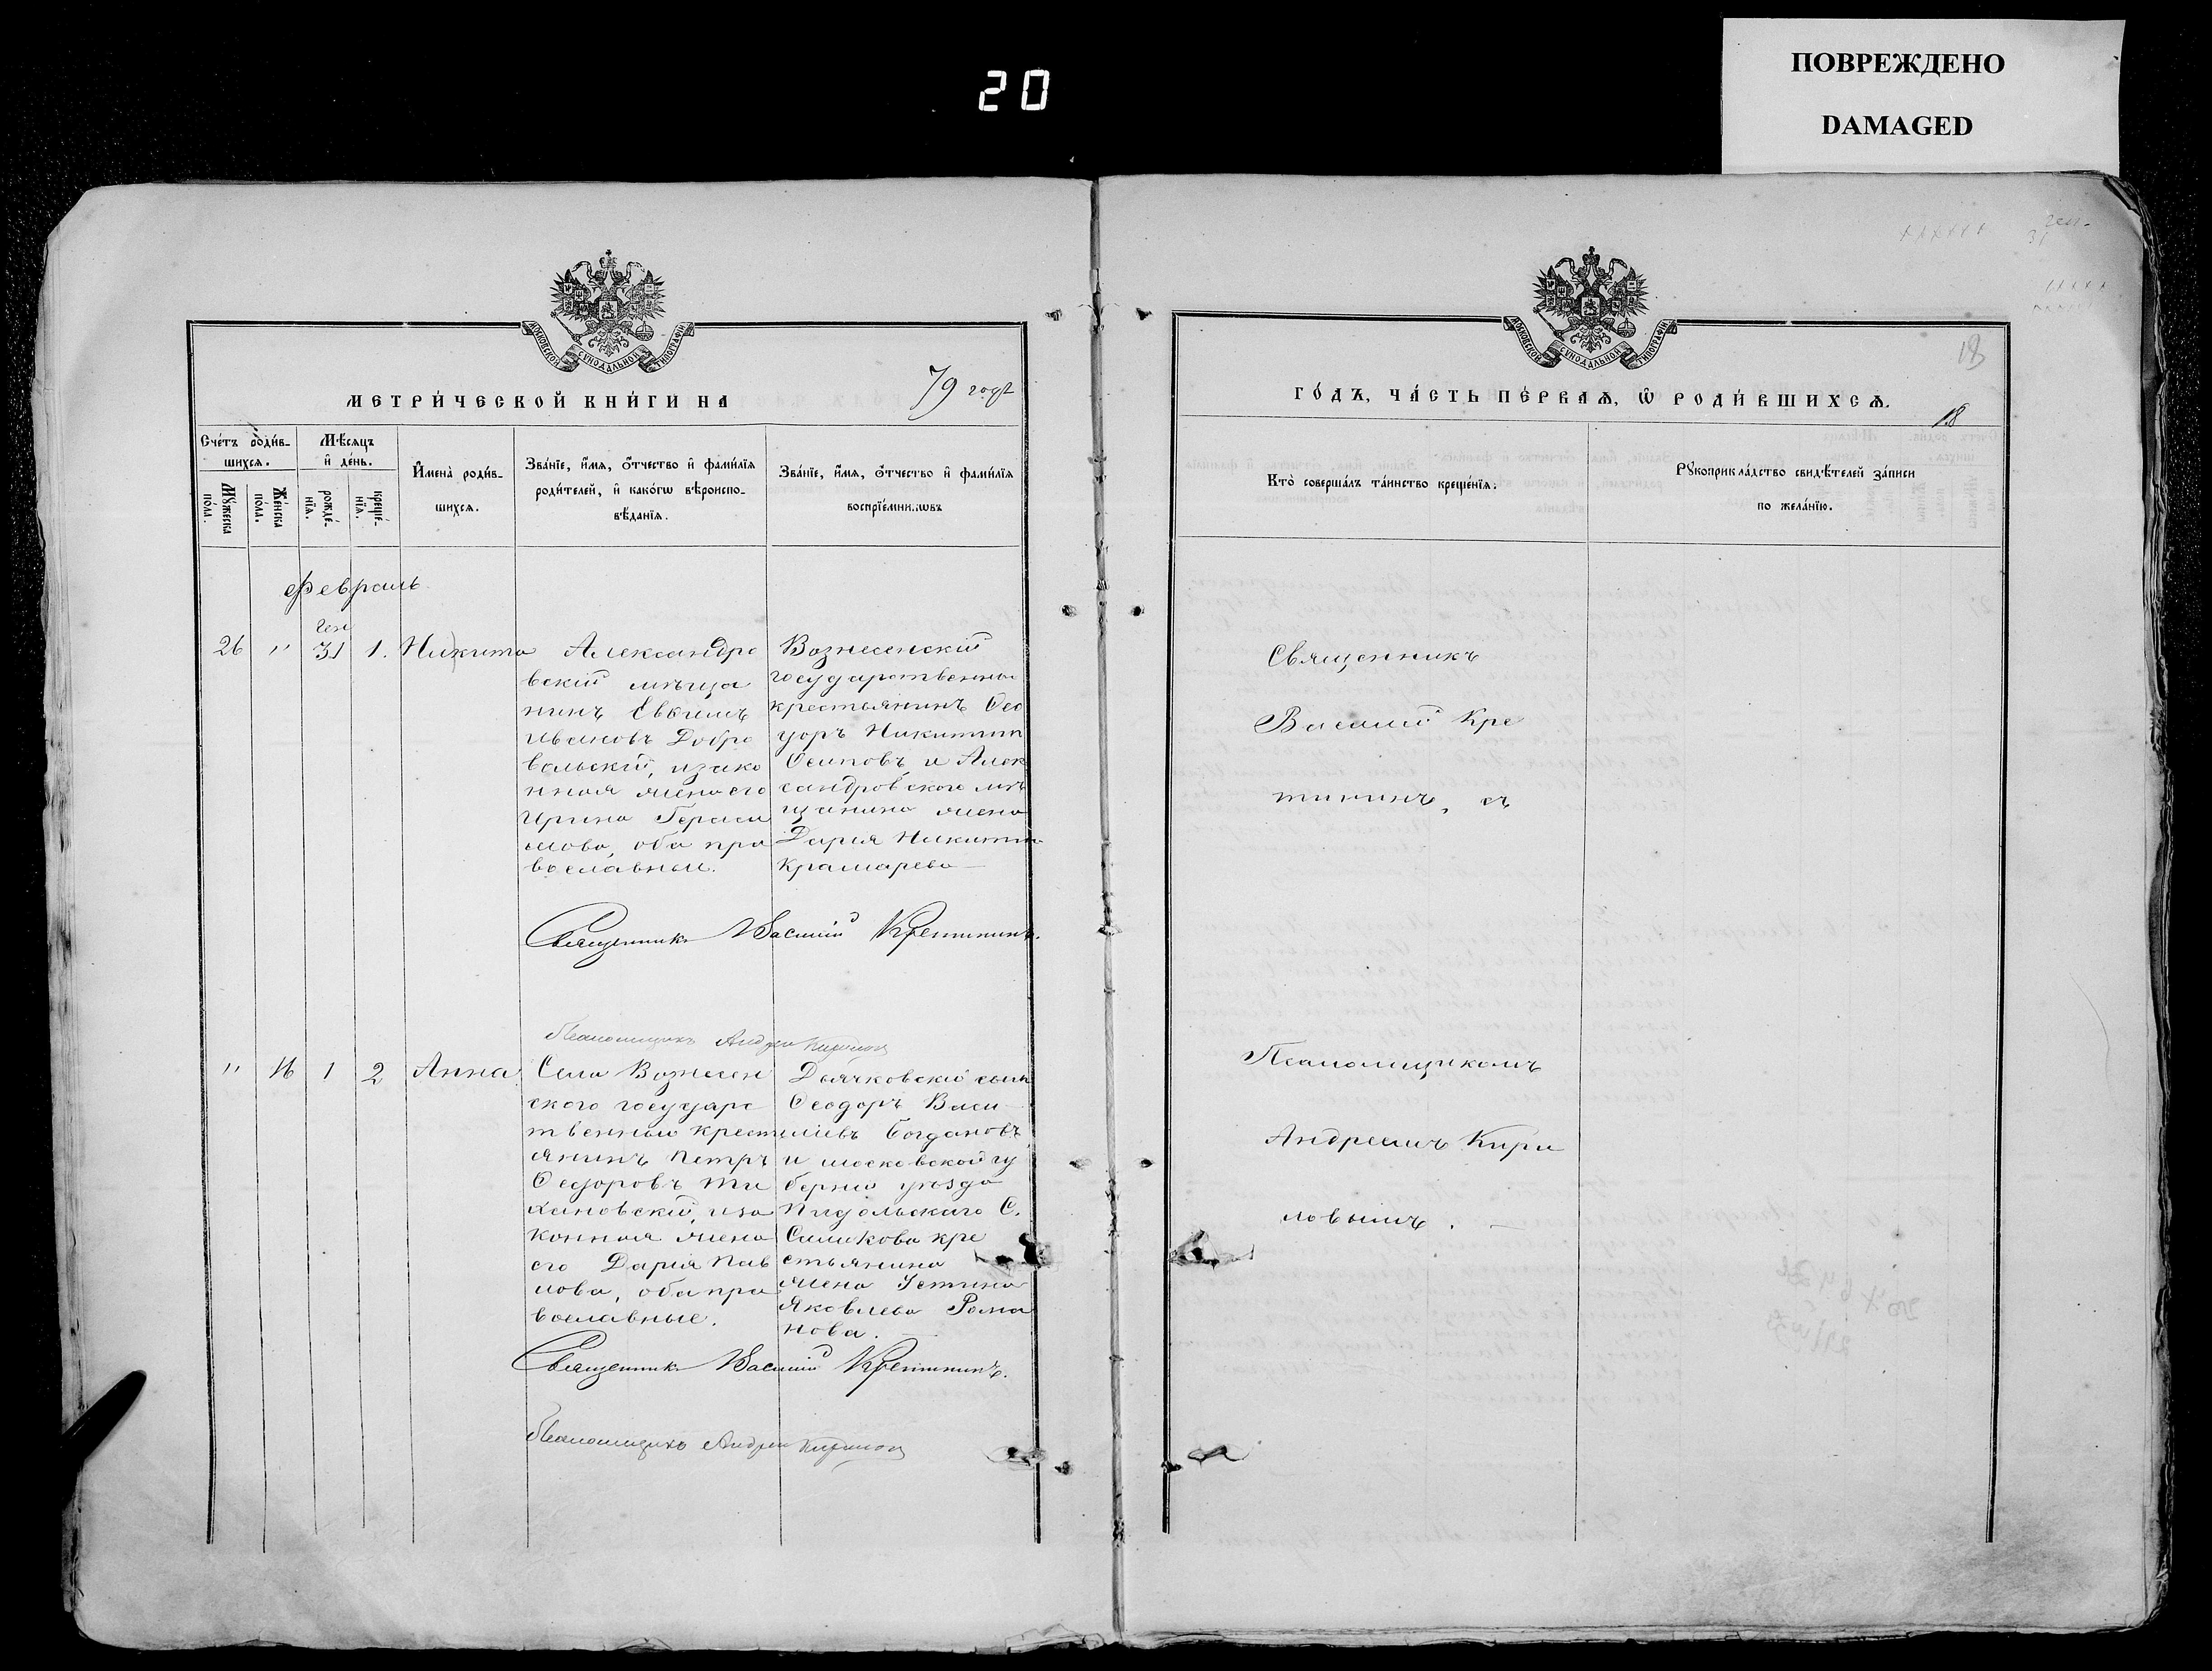 20
ПОВРЕЖДЕНО
DAMAGED
МОСКОВСКОЙ СѴНОДАЛЬНОЙ ТИПОГРАФІИ
МЕТРИ́ЧЕСКОЙ КНИ́ГИ НА 79 годъ
Сче́тъ роди́в-
шихсѧ.
Мѣ́сѧцъ
и҆ де́нь.
Мꙋ́жеска по́ла.
Же́нска по́ла.
рожде́-
нїѧ.
креще́-
нїѧ.
И҆мена̀ роди́в-
шихсѧ.
Зва́нїе, и҆́мѧ, ѻ҆́тчество и҆ фами́лїѧ
роди́телей, и҆ како́гѡ вѣроиспо-
вѣ́данїѧ.
Зва́нїе, и҆́мѧ, ѻ҆́тчество и҆ фами́лїѧ
воспрїе́мниковъ
Февраль
Ген
26 " 31 1. Никита
Александро
вскій мѣща
нинъ Евфимъ
Ивановъ Добро
вольскій, и зако
нная жена его
Ирина Гераси
мова, оба пра
вославные.
Вознесенскій
государственный
крестьянинъ Ѳео
доръ Никитин
Осиповъ и Алек
сандровского мѣ
щанина жена
Дарія Никитина
Крамарева
Священникъ Василій Кретининъ.
Псаломщикъ Андрей Кириловъ
" 16 1 2 Анна
Села Вознесен
ского государс
твенный крест
янинъ Петръ
Ѳедоровъ Ти
хановскій, и за
конная жена
его Дарія Пав
лова, оба пра
вославные.
Дьячковскій сынъ
Ѳеодоръ Васи
ліевъ Богдановъ
и московской гу
берніи уѣзда
Подольскаго С.
кре
стьянина
жена Устина
Яковлева Рома
нова.
Священникъ Василій Кретининъ.
Псаломщикъ Андрей Кириловъ
МОСКОВСКОЙ СѴНОДАЛЬНОЙ ТИПОГРАФІИ
Ген.
31
18
ГО́ДЪ, ЧА́СТЬ ПЕ́РВАѦ, Ѡ҆ РОДИ́ВШИХСѦ.
18
Кто̀ соверша́лъ та́инство креще́нїѧ:
Рꙋкоприкла́дство свидѣ́телей за́писи
по жела́нїю.
Священникъ
Василій Кре
тининъ, съ
Псаломщикомъ
Андреемъ Кири
ловымъ.